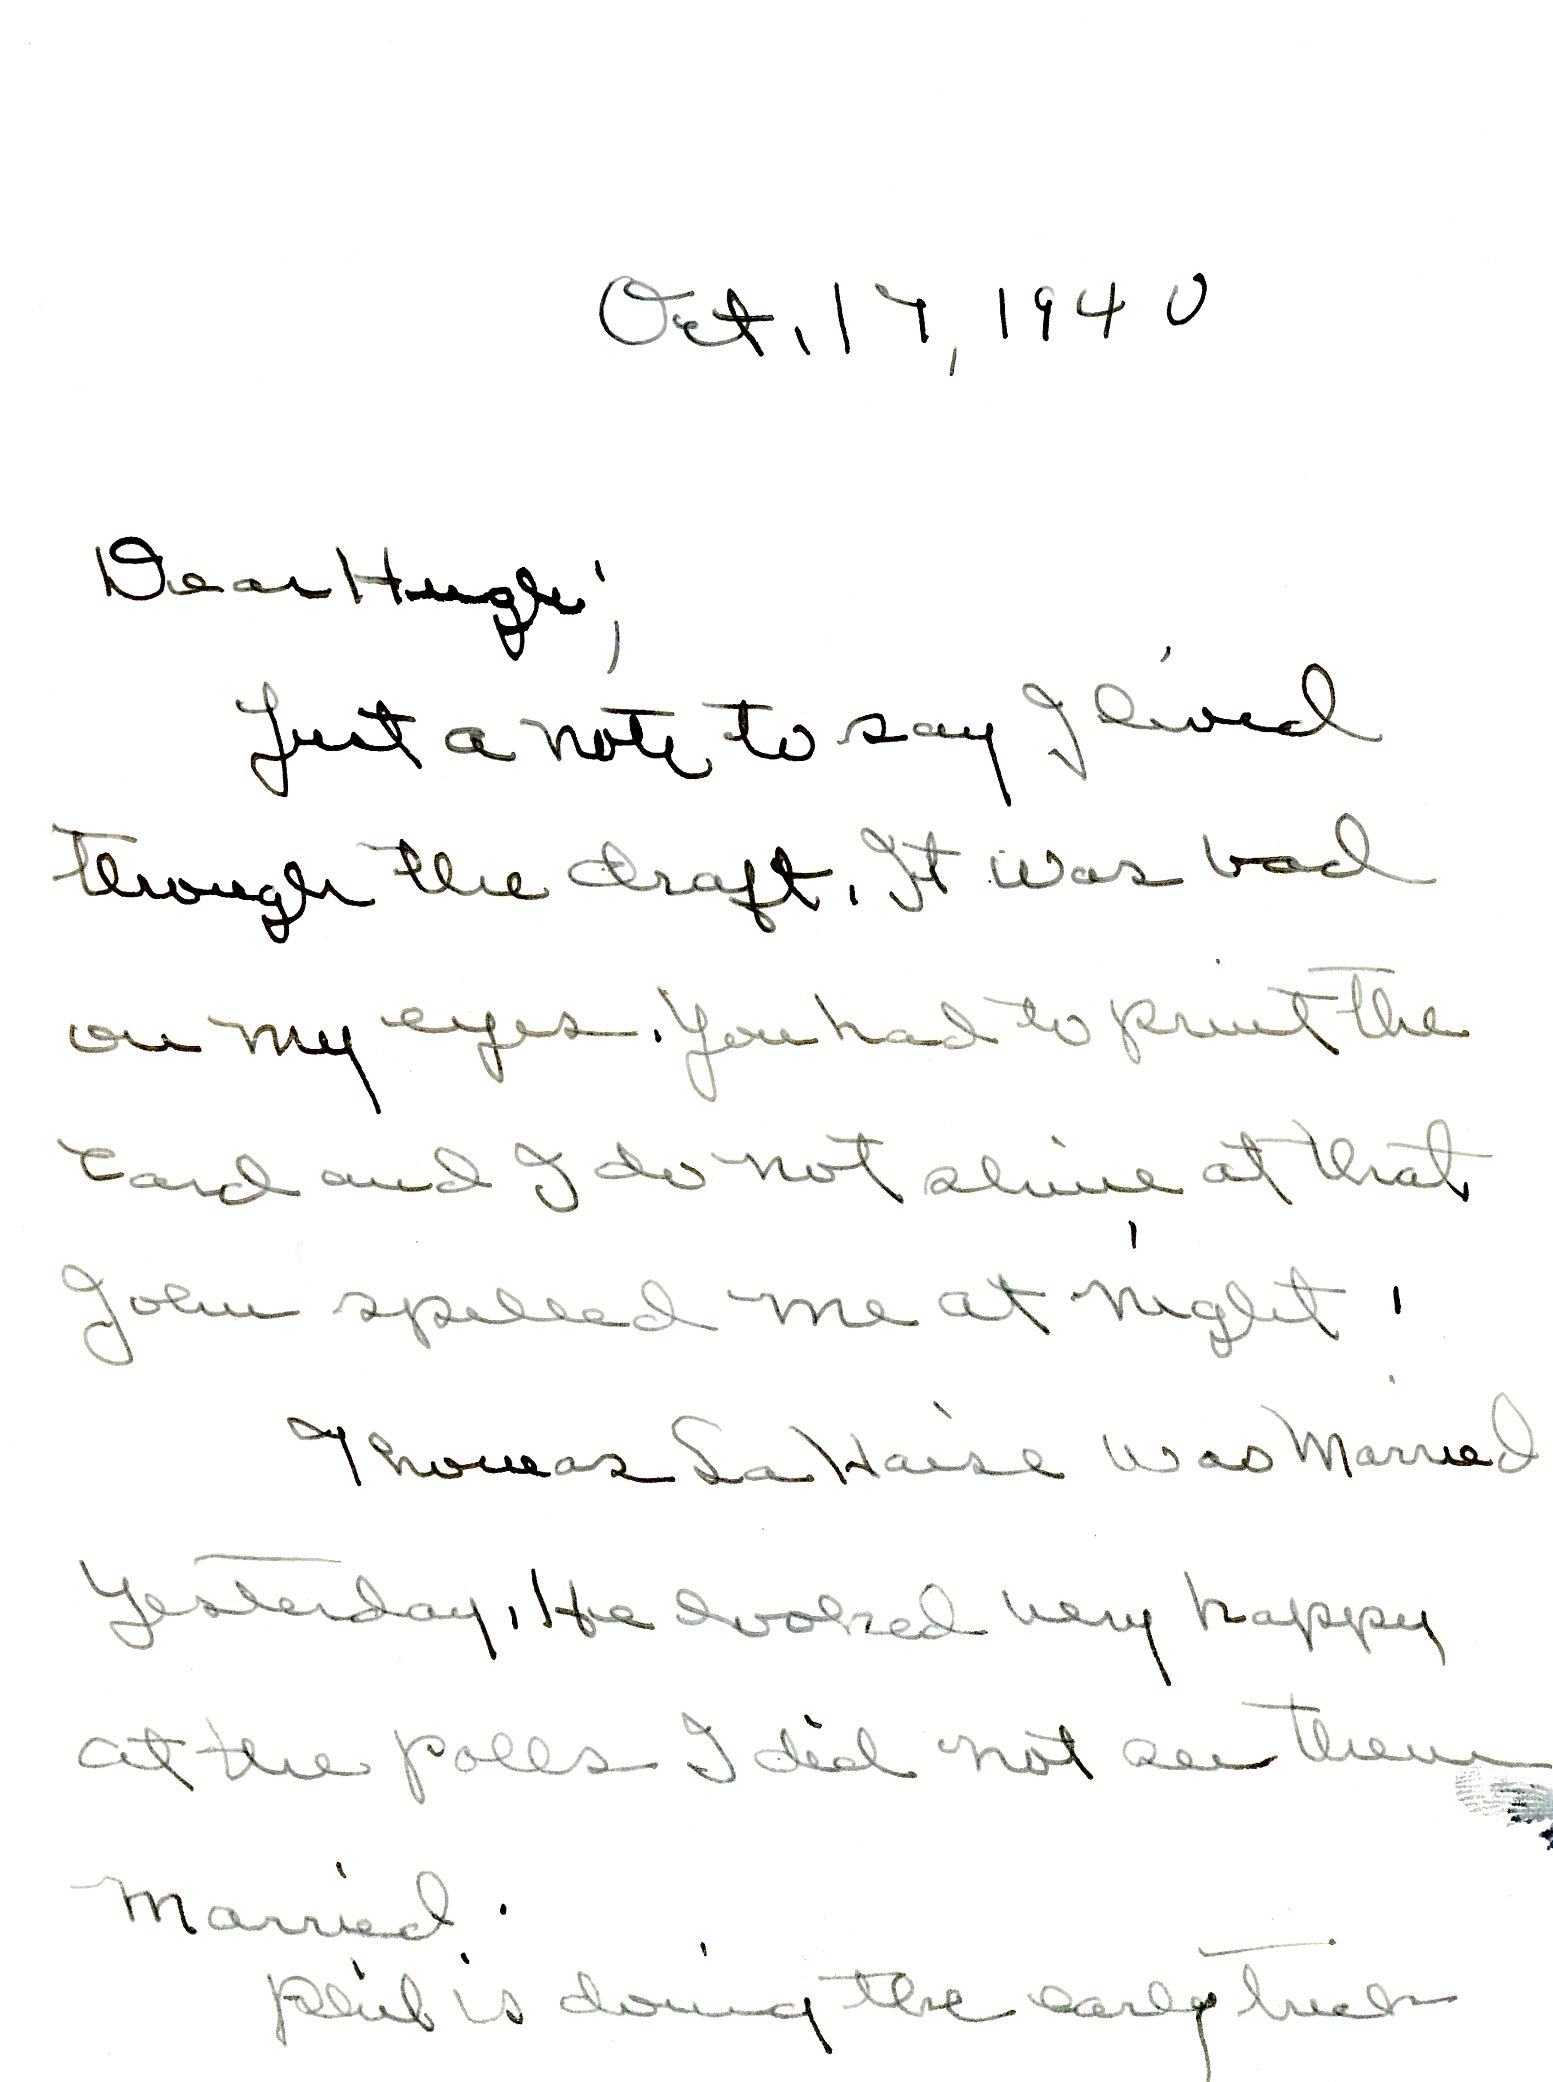 Oct. 17, 1940
Dear Hughie,
Just a note to say I lived
through the draft. It was bad
on my eyes. You had to print the
card and I do not shine at that
John spelled me at night.
Thomas LaHaise was Married
yesterday. He looked very happy
at the polls I did not see them
Married.
Phil is doing the early trick